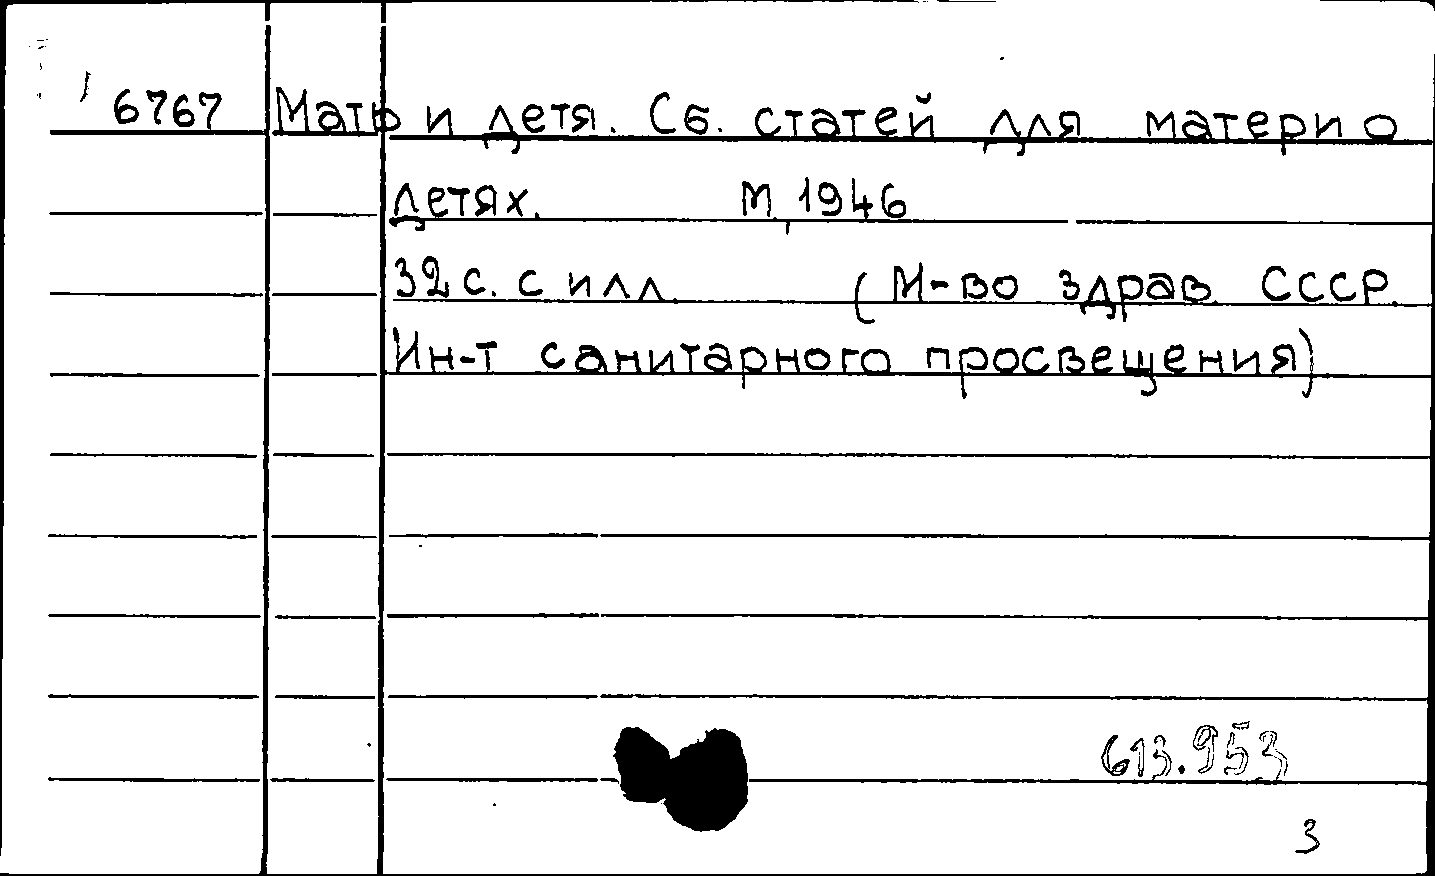 6767 Мать и детя. Сб. статей для матери о
детях. М, 1946
32 с. с илл. (М-во здрав. СССР.
Ин-т санитарного просвещения)
613.953
3